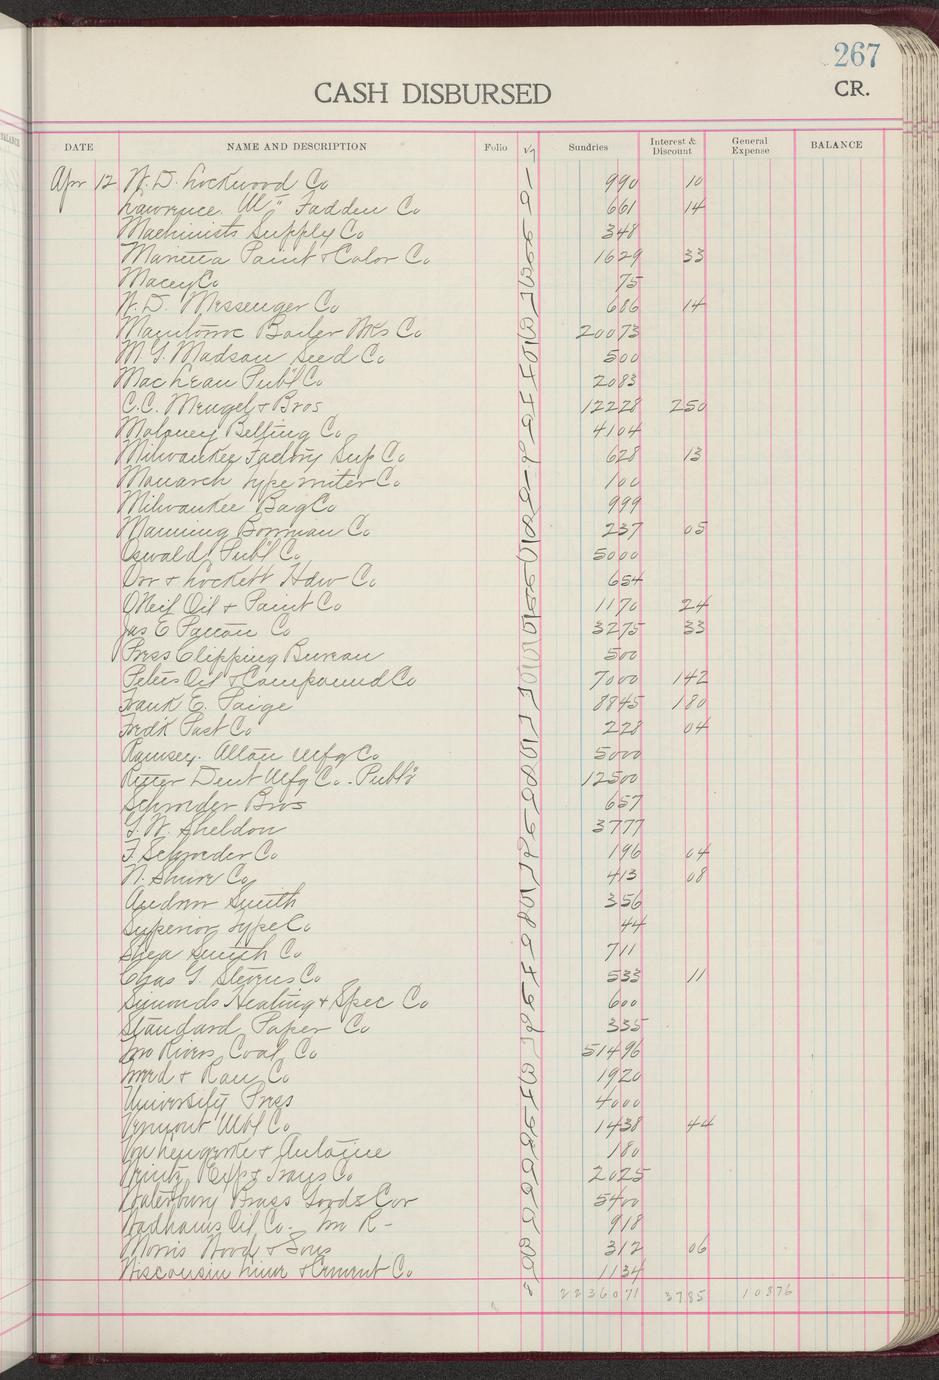 267
CASH DISBURSED
CR.
DATE NAME AND DESCRIPTION Folio Sundries Interest & Discount General Expense BALANCE
Apr 12 W. D. Lockwood Co 990 10
Lawrence Mc Fadden Co 661 14
Machinists Supply Co 348
Marietta Paint & Color Co 1629 33
Macey Co 75
W. D. Messenger Co 686 14
Manitowoc Boiler Wks Co 20073
M. G. Madson Seed Co 500
Mac Lean Publ Co 2083
C.C. Mengel & Bros 12228 250
Maloney Belting Co 4104
Milwaukee Factory Sup Co 628 13
Monarch Typewriter Co 100
Milwaukee Bag Co 999
Manning Bowman Co 237 05
Oswald Publ Co 5000
Orr & Lockett Hdw Co 654
ONeil Oil & Paint Co 1170 24
Jas E Patton Co 3275 33
Press Clipping Bureau 500
Peters Oil & Compound Co 7000 142
Frank E. Paige 8845 180
Fredk Post Co 228 04
Ramsey. Alton Mfg Co 5000
Ritter Dent Mfg Co. 12500
Schroeder Bros 657
G. W. Sheldon 3777
F Schroeder Co 196 04
N. Shure Co 413 08
Andrew Smith 356
Superior Type Co 44
Shea Smith Co 711
Chas G. Stevens Co 533 11
Simonds Heating & Spec Co 600
Standard Paper Co 335
Two Rivers Coal Co 51496
& Rau Co 1920
University Press 4000
Vermont Mbl Co 1438 44
Von Lengerke & Antoine 180
Exp & Trans Co 2025
Waterbury Brass Goods Cor 5400
Wadhams Oil Co. 918
Morris Wood & Sons 312 06
Wisconsin Lime & Cement Co 1134
2236071 3785 10876